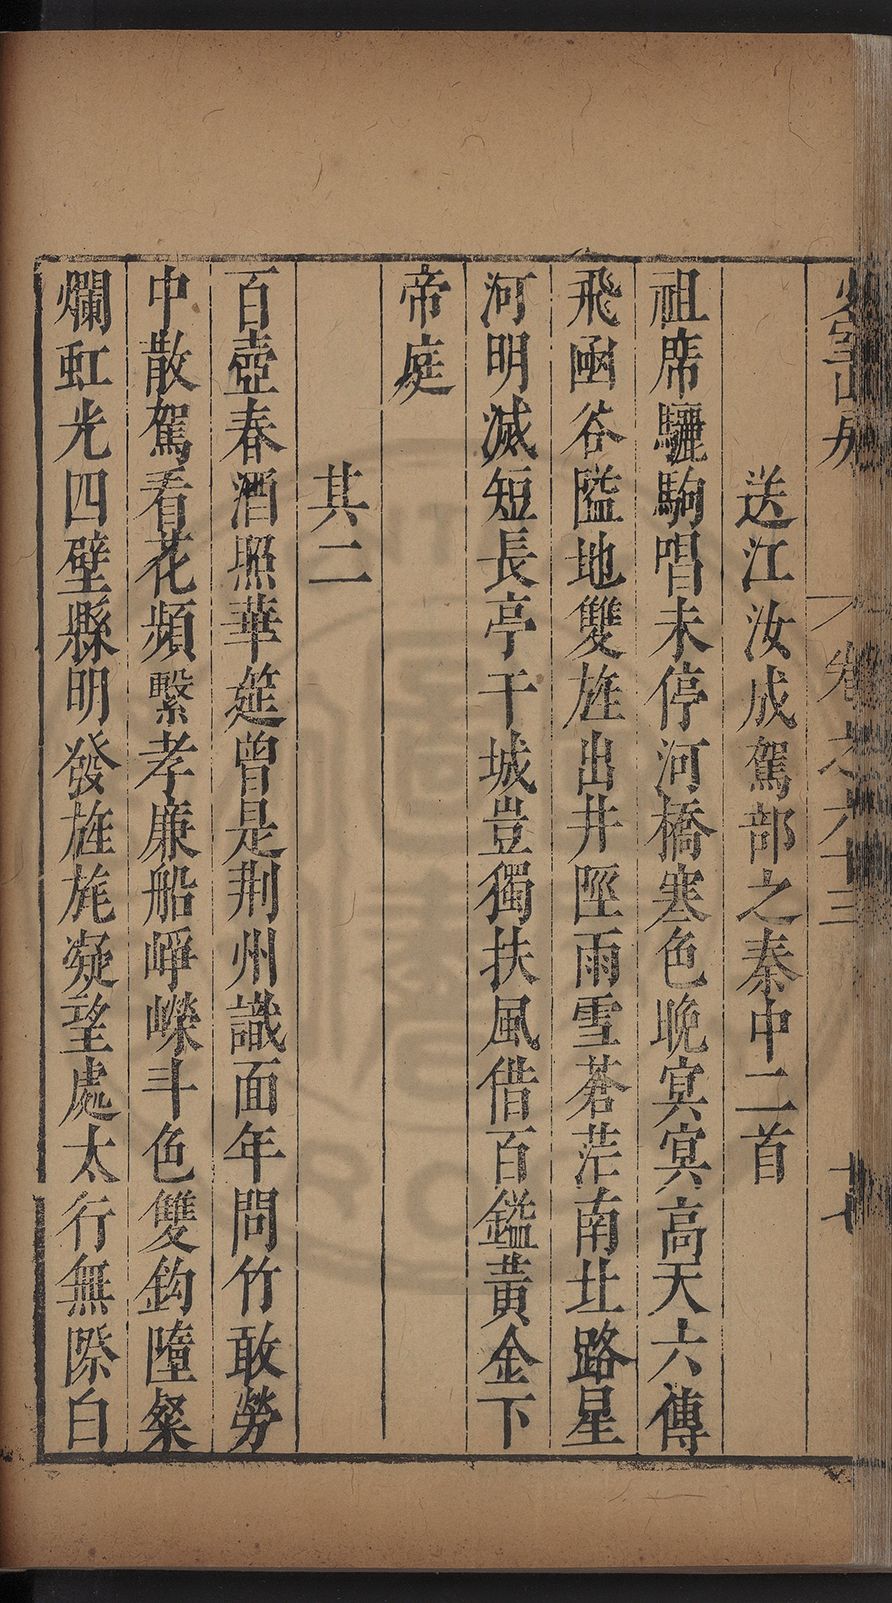 少室山房
卷之六十三
十七
送江汝成駕部之秦中二首
祖席驪駒唱未停河橋寒色晚冥冥高天六傳
飛函谷隘地雙旌出井陘雨雪蒼茫南北路星
河明滅短長亭干城豈獨扶風借百鎰黃金下
帝庭
其二
百壺春酒照華筵曾是荆州識面年問竹敢勞
中散駕看花頻繫孝廉船崢嶸斗色雙鈎墮粲
爛虹光四壁縣明發旌旄凝望處太行無際白